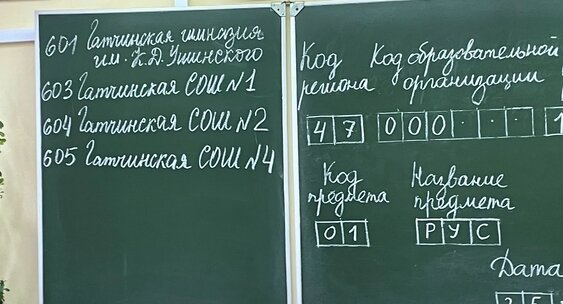 601 Гатчинская гимназия
им. К.Д. Ушинского
603 Гатчинская СОШ N 1
604 Гатчинская СОШ N 2
605 Гатчинская СОШ N 4
Код региона
Код образовательной организации
4 7
0 0 0 . . .
1
Код предмета
Название предмета
0 1
Р У С
Дата